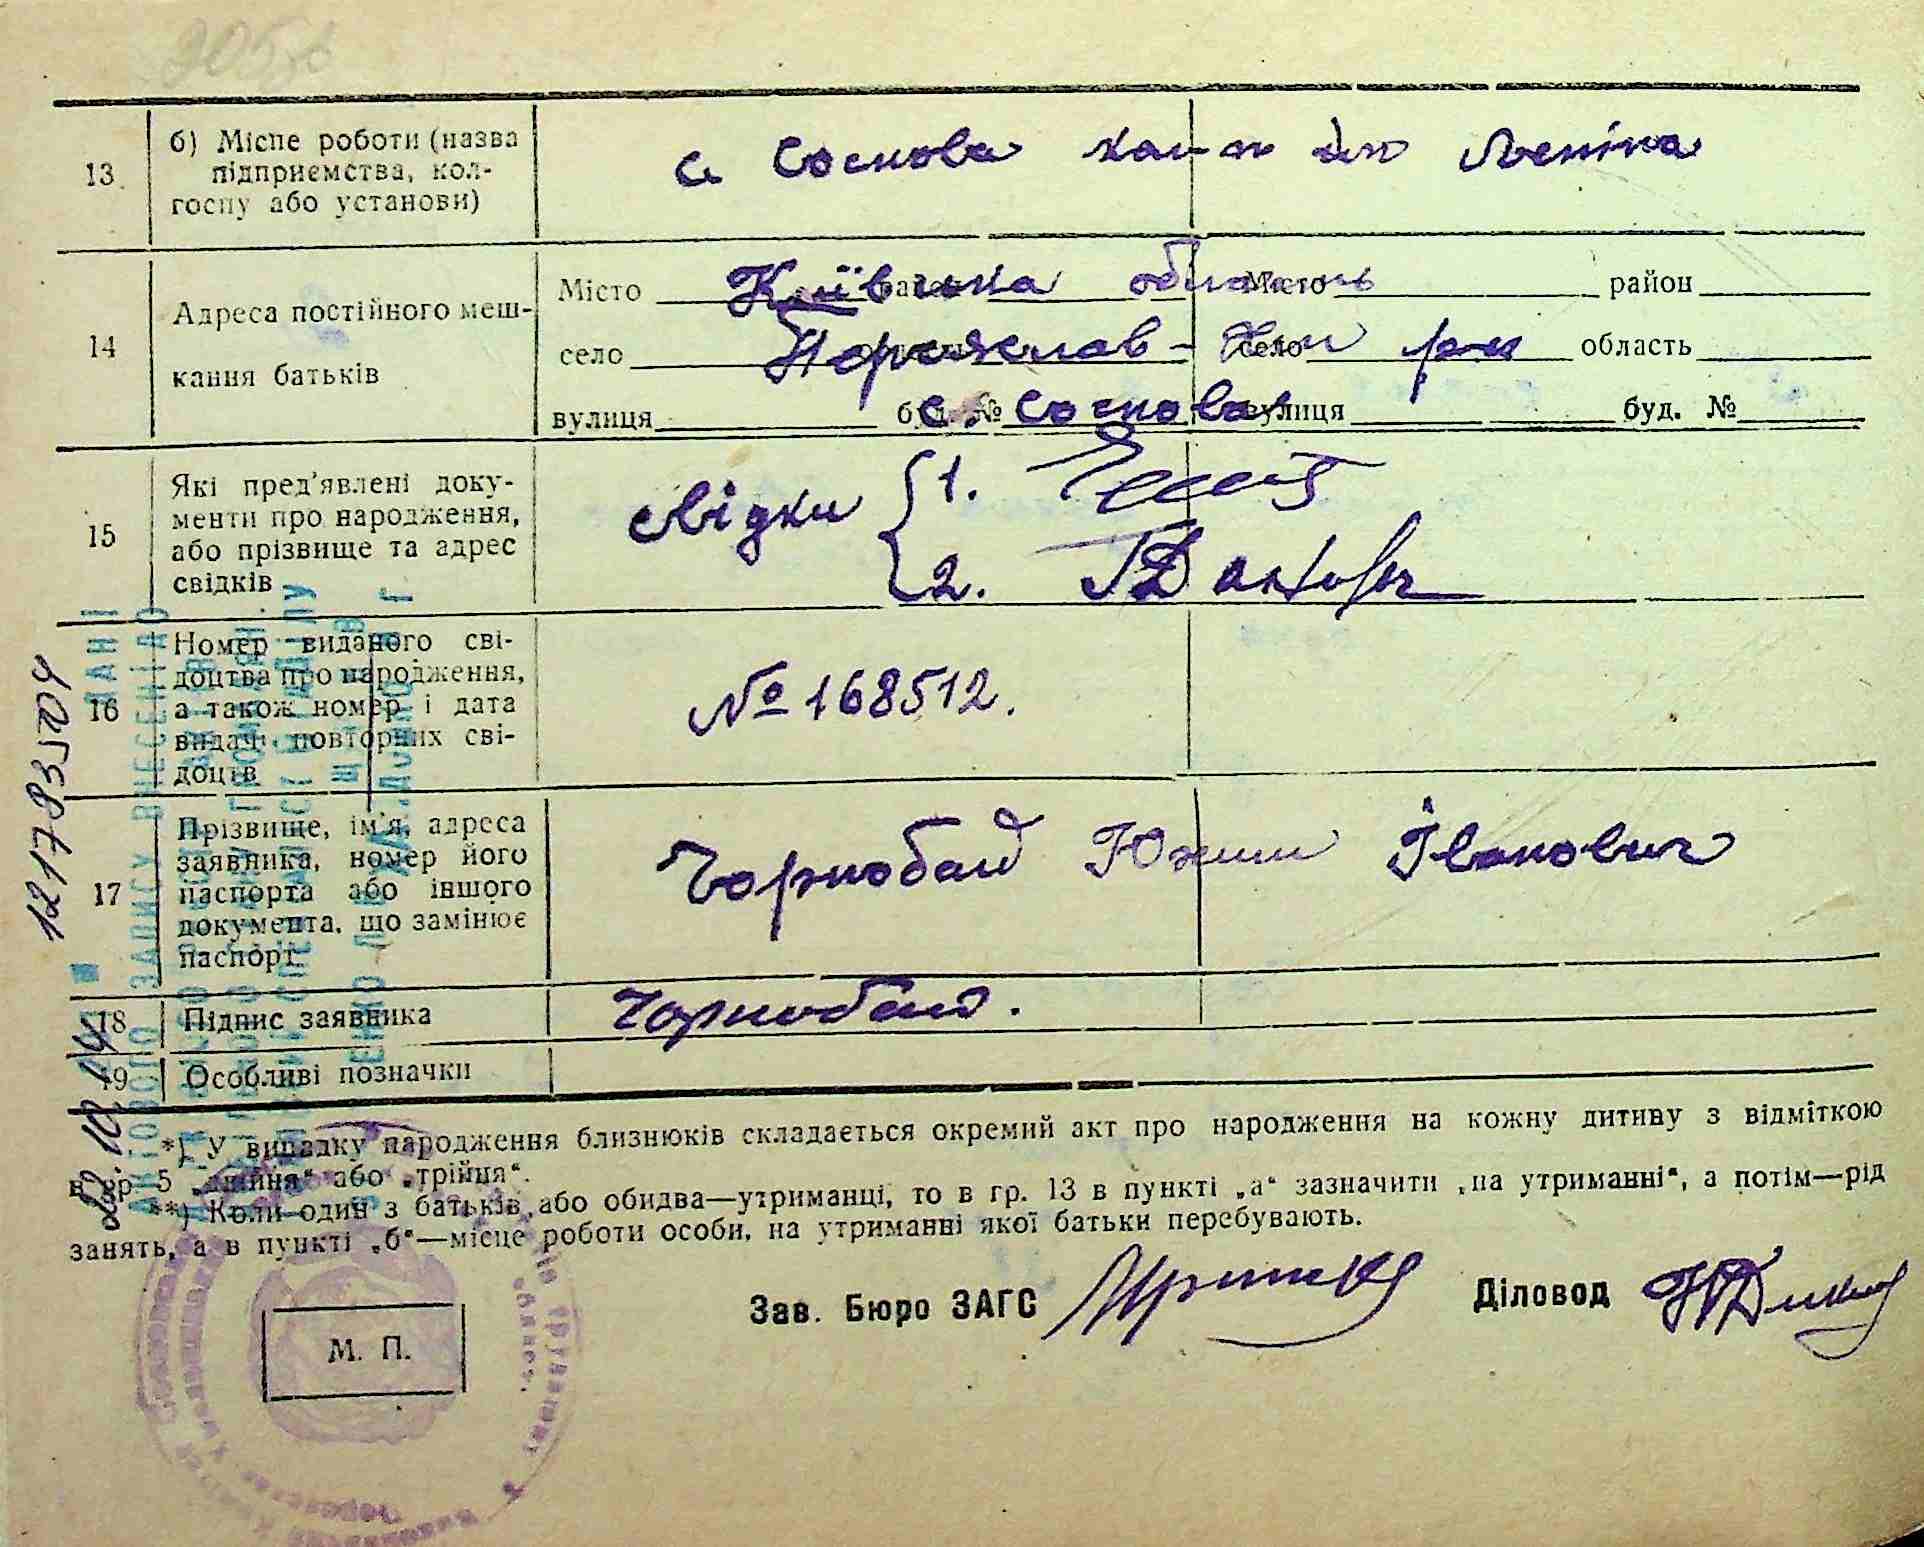 13 б) Місце роботи (назва
підприємства, кол-
госпу або установи)
с Соснова кол-п ім Леніна
14 Адреса постійного меш-
кання батьків
Місто Київська область Місто район
село Переяслав-Хм р-н село область
вулиця буд. № с. Соснова вулиця буд. №
15 Які пред'явлені доку-
менти про народження,
або прізвище та адрес
свідків
свідки 1.
2.
16 Номер виданого сві-
доцтва про народження,
а також номер і дата
видачі повторних сві-
доцтв
№ 168512.
17 Прізвище, ім'я, адреса
заявника, номер його
паспорта або іншого
документа, що замінює
паспорт
Чорнобай Юхим Іванович
18 Підпис заявника
Чорнобай.
19 Особливі позначки
*) У випадку народження близнюків складається окремий акт про народження на кожну дитину з відміткою
в гр. 5 „двійня“ або „трійня“.
**) Коли один з батьків або обидва—утриманці, то в гр. 13 в пункті „а“ зазначити „на утриманні“, а потім—рід
занять, а в пункті „б“—місце роботи особи, на утриманні якої батьки перебувають.
Зав. Бюро ЗАГС Діловод
М. П.
ДАНІ
АКТОВОГО ЗАПИСУ ВНЕСЕНІ ДО